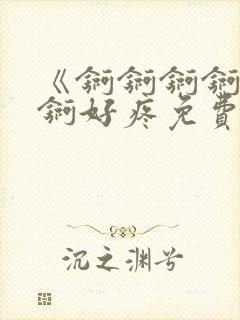 《锕锕锕锕
锕好疼免費
沉之渊兮